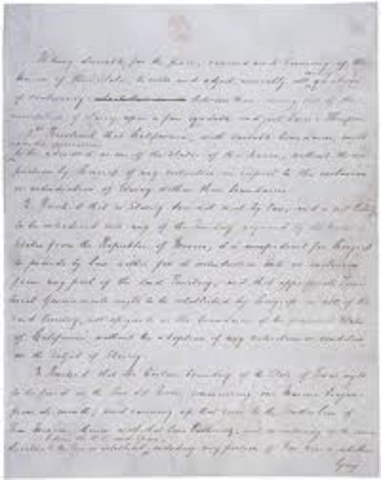 It being desirable, for the peace, concord and harmony of the
Union of these States to settle and adjust amicably all questions
of controversy between them arising out of the
institution of Slavery, upon a fair equitable and just basis: Therefore
1st Resolved that California, with suitable boundaries, ought
to be admitted as one of the States of this Union, without the im
position by Congress of any restriction in respect to the exclusion
or introduction of Slavery within those boundaries.
2. Resolved that as Slavery does not exist by law, and is not likely
to be introduced into any of the Territory acquired by the United
States from the Republic of Mexico, it is inexpedient for Congress
to provide by law either for its introduction into or exclusion
from any part of the said Territory; and that appropriate Terri
torial Governments ought to be established by Congress in all of the
said Territory, not assigned as the boundaries of the proposed State
of California, without the adoption of any restriction or condition
on the subject of Slavery.
3. Resolved that the Western boundary of the State of Texas ought
to be fixed on the Rio del Norte, commencing one Marine league
from its mouth, and running up that river to the Southern line of
New Mexico, thence with that line Eastwardly, and
continuing in the same
direction to the line as established,
including any portion of New Mexico
lying